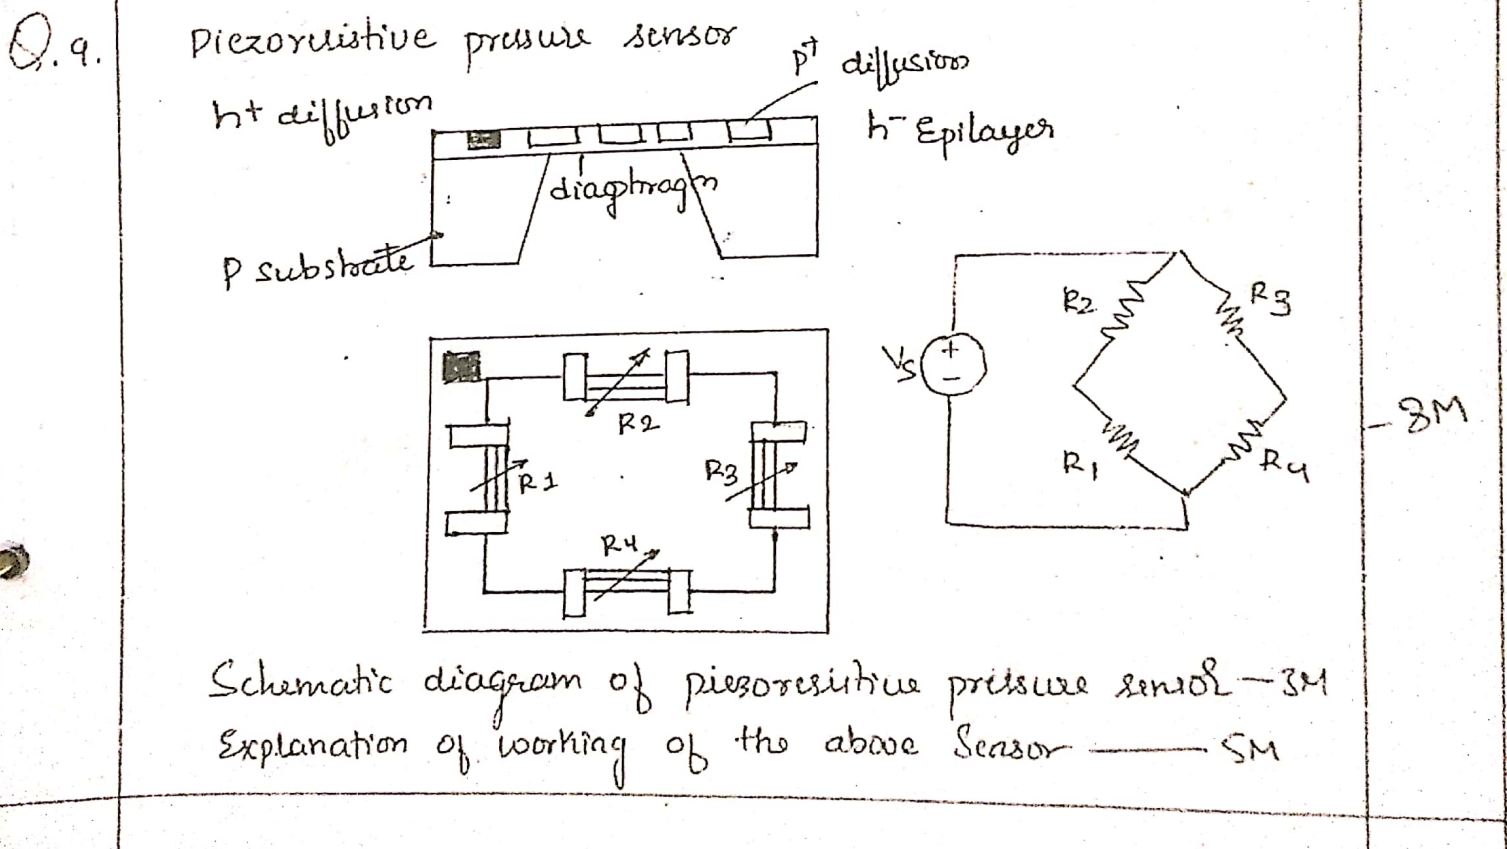 Q.9.
Piezoresistive pressure sensor
p+ diffusion
n+ diffusion
n- Epilayer
diaphragm
P substrate
R2
R3
Vs
+
-
R1
R4
R2
R1
R3
R4
- 8M
Schematic diagram of piezoresistive pressure sensor - 3M
Explanation of working of the above Sensor - 5M